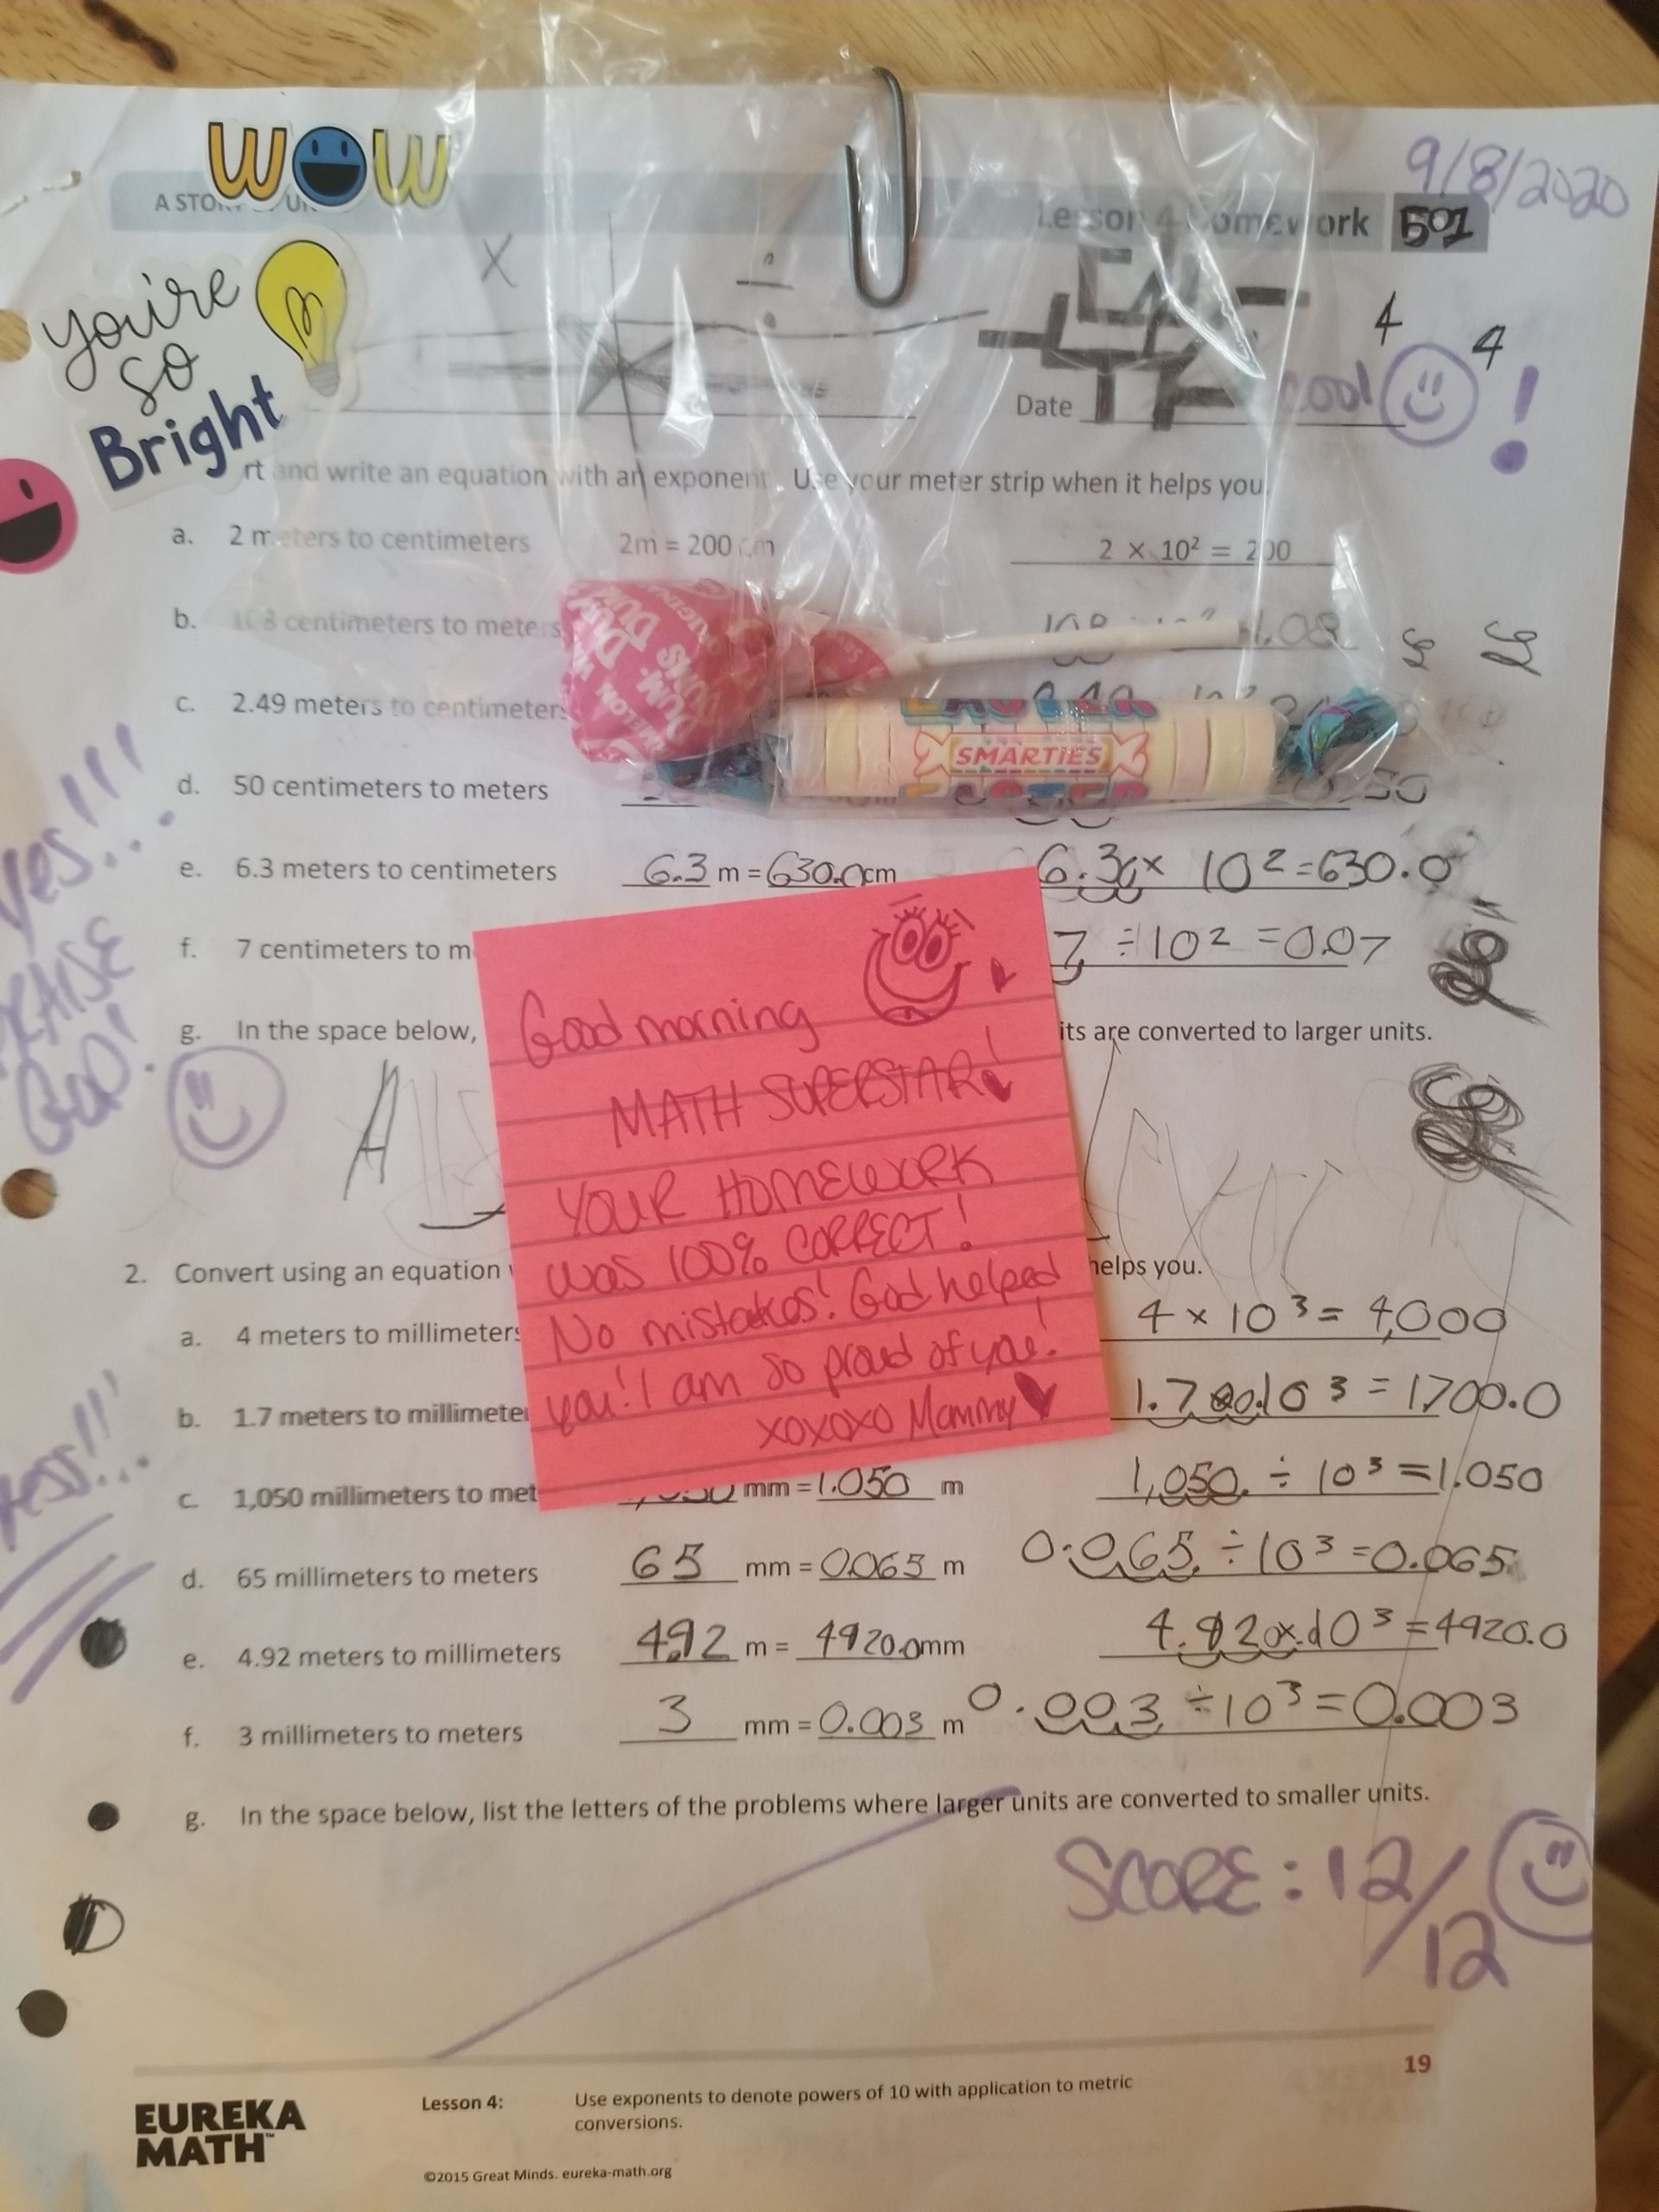 WOW
9/8/2020
A STO
Lesson 4 Homework 501
you're
so
Bright
X ÷
4 4
Date
cool !
rt and write an equation with an exponent. Use your meter strip when it helps you
a. 2 meters to centimeters 2m = 200 cm 2 × 10² = 200
b. 108 centimeters to meters 1.08
c. 2.49 meters to centimeters
DUM DUMS
SMARTIES
d. 50 centimeters to meters
e. 6.3 meters to centimeters 6.3 m = 630.0 cm 6.30 × 10² = 630.0
f. 7 centimeters to m 7 ÷ 10² = 0.07
g. In the space below, its are converted to larger units.
yes!!!
PRAISE
GOD!
Good morning
MATH SUPERSTAR!
YOUR HOMEWORK
was 100% CORRECT!
No mistakes! God helped
you! I am so proud of you!
xoxoxo Mommy
2. Convert using an equation helps you.
a. 4 meters to millimeters 4 × 10³ = 4,000
b. 1.7 meters to millimete 1.700. 10³ = 1700.0
c. 1,050 millimeters to met mm = 1.050 m 1,050. ÷ 10³ = 1.050
d. 65 millimeters to meters 65 mm = 0.065 m 0.065. ÷ 10³ = 0.065
e. 4.92 meters to millimeters 4.92 m = 4920.0 mm 4.920 × 10³ = 4920.0
f. 3 millimeters to meters 3 mm = 0.003 m 0.003. ÷ 10³ = 0.003
g. In the space below, list the letters of the problems where larger units are converted to smaller units.
SCORE: 12/12
19
EUREKA
MATH™
Lesson 4: Use exponents to denote powers of 10 with application to metric
conversions.
©2015 Great Minds. eureka-math.org